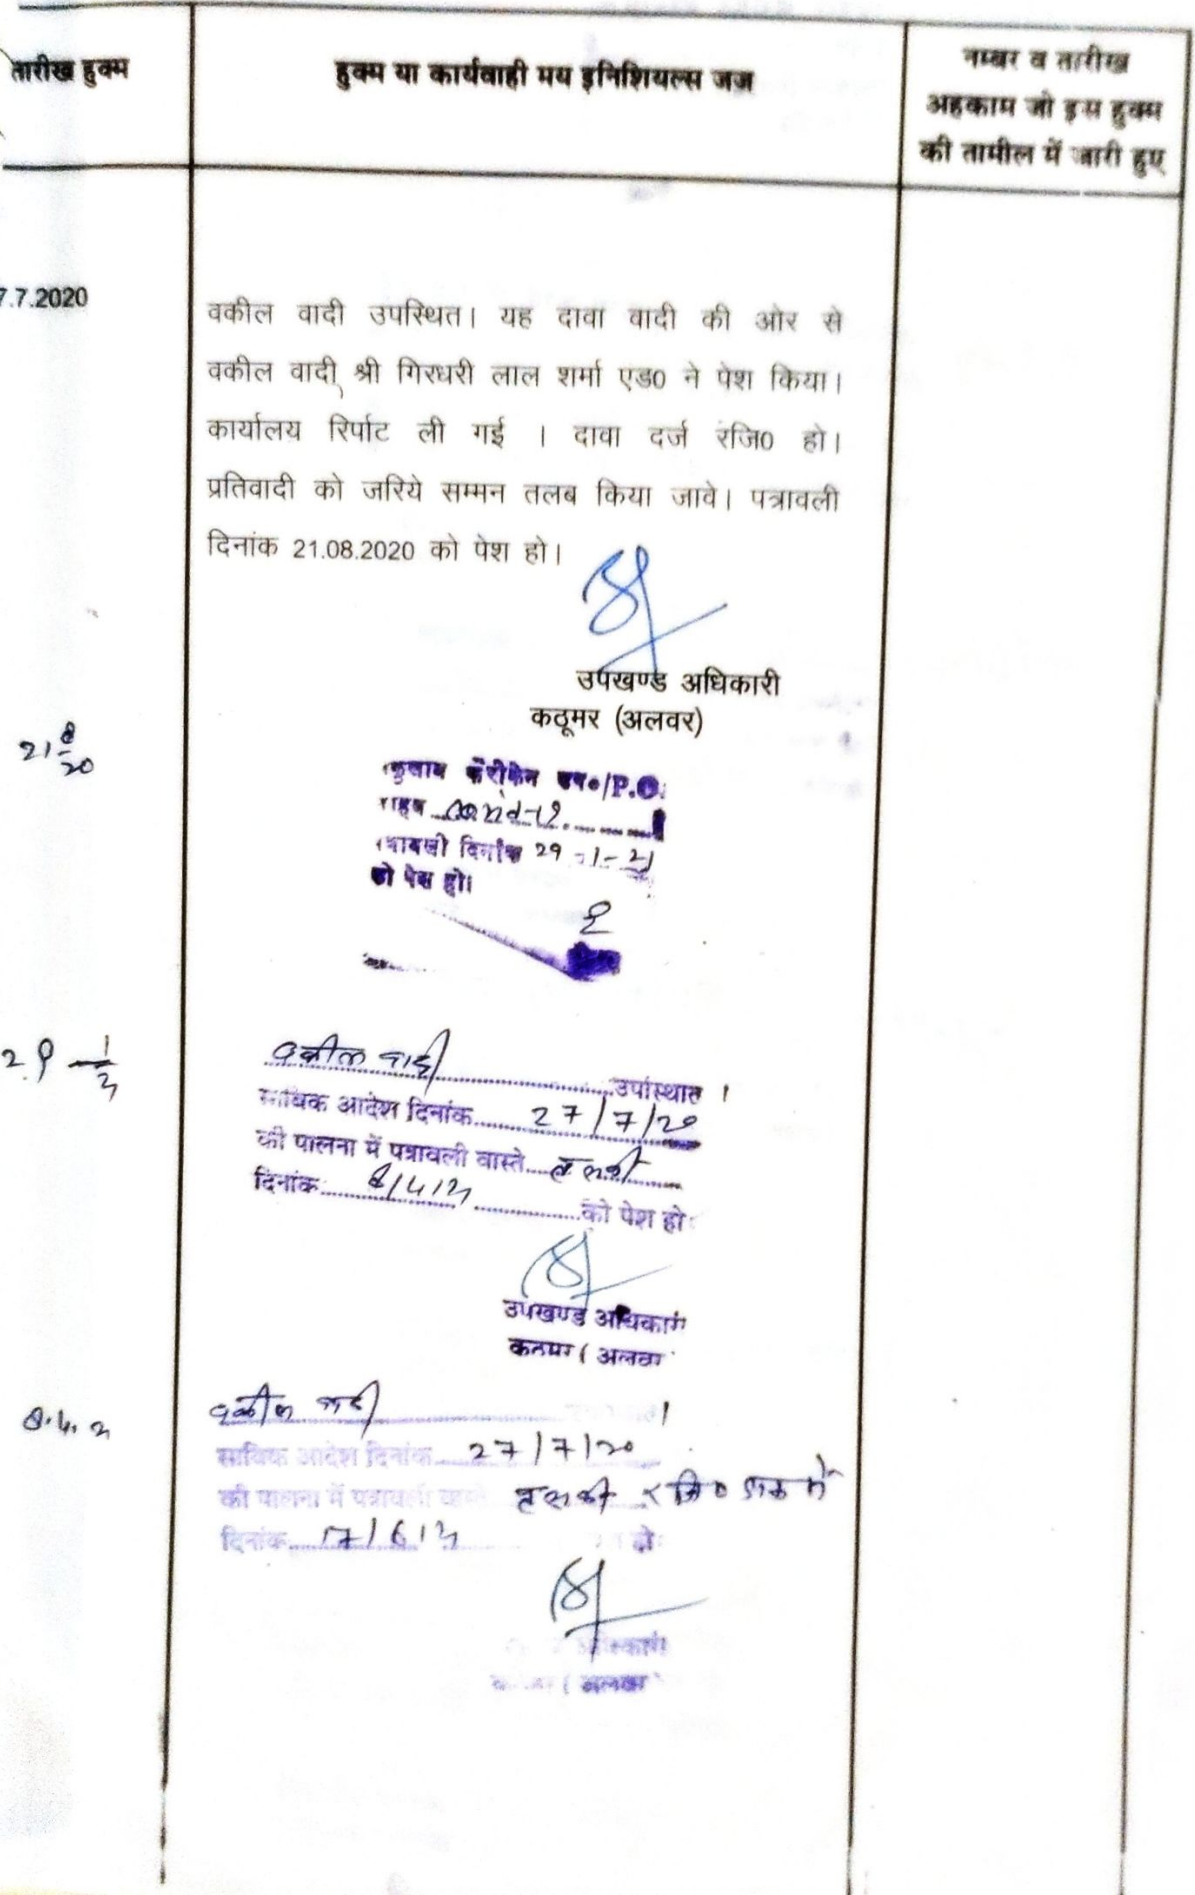 तारीख हुक्म
हुक्म या कार्यवाही मय इनिशियल्स जज
नम्बर व तारीख
अहकाम जो इस हुक्म
की तामील में जारी हुए
7.7.2020
वकील वादी उपस्थित। यह दावा वादी की ओर से
वकील वादी श्री गिरधरी लाल शर्मा एड0 ने पेश किया।
कार्यालय रिर्पाट ली गई । दावा दर्ज रजि0 हो।
प्रतिवादी को जरिये सम्मन तलब किया जावे। पत्रावली
दिनांक 21.08.2020 को पेश हो।
उपखण्ड अधिकारी
कठूमर (अलवर)
21 8/20
P.O.
दिनांक 29-1-21
को पेश हो।
29 1/21
वकील वादी उपस्थित ।
साबिक आदेश दिनांक 27/7/20
की पालना में पत्रावली वास्ते तलबी
दिनांक 8/4/21 को पेश हो
उपखण्ड अधिकारी
(अलवर
8.4.21
वकील वादी ।
साबिक आदेश दिनांक 27/7/20
की पालना में पत्रावली वास्ते तलबी रजि0 डाक से
दिनांक 17/6/21 हो
अधिकारी
(अलवर